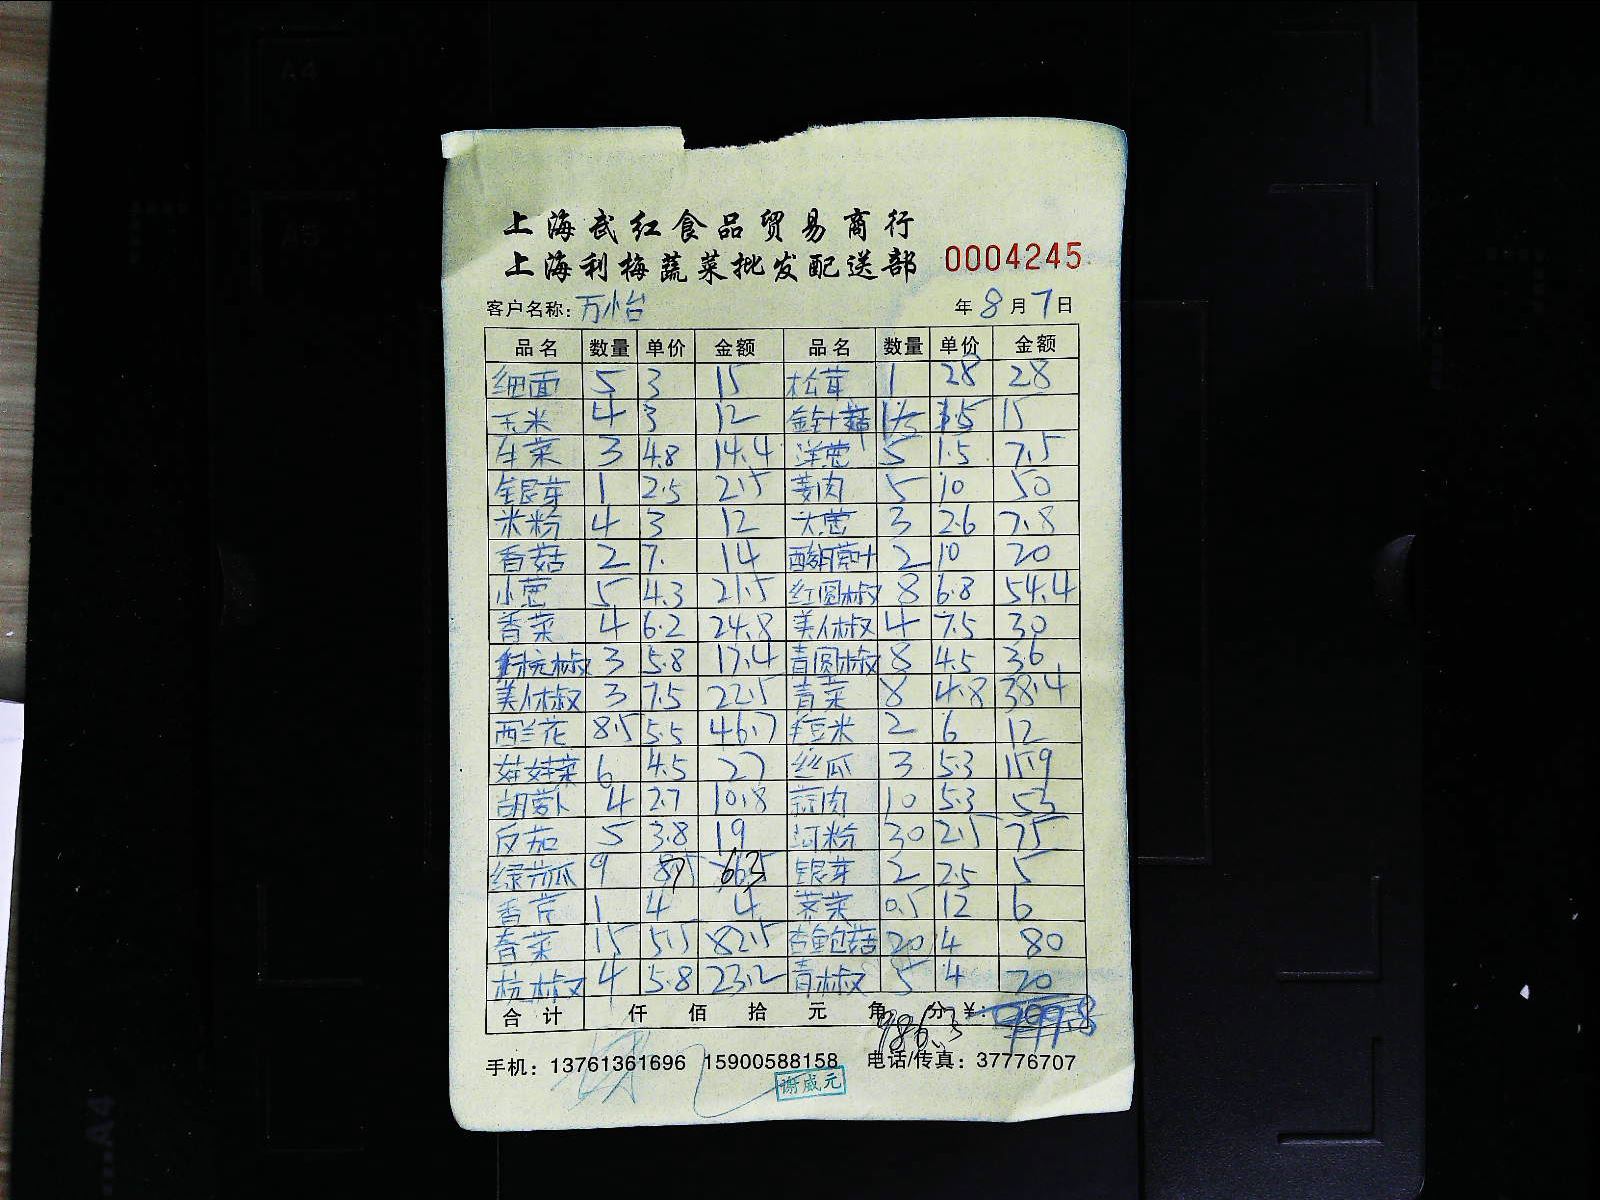 上海武红食品贸易商行
上海利梅蔬菜批发配送部 0004245
客户名称: 万怡 年 8 月 7 日
品名 数量 单价 金额 品名 数量 单价 金额
细面 5 3 15 松茸 1 28 28
玉米 4 3 12 金针菇 15
生菜 3 4.8 14.4 洋葱 5 1.5 7.5
银芽 1 2.5 2.5 姜肉 5 10 50
米粉 4 3 12 大葱 3 2.6 7.8
香菇 2 7. 14 2 10 20
小葱 5 4.3 21.5 红圆椒 8 6.8 54.4
香菜 4 6.2 24.8 美人椒 4 7.5 30
杭椒 3 5.8 17.4 青圆椒 8 4.5 36
美人椒 3 7.5 22.5 青菜 8 4.8 38.4
西兰花 8.5 5.5 46.7 豆米 2 6 12
娃娃菜 6 4.5 27 丝瓜 3 5.3 15.9
胡萝卜 4 2.7 10.8 蒜肉 10 5.3 53
反茄 5 3.8 19 河粉 30 2.5 75
绿苦瓜 9 银芽 2 2.5 5
香芹 1 4 4 荠菜 0.5 12 6
春菜 15 5.5 82.5 杏鲍菇 20 4 80
杭椒 4 5.8 23.2 青椒 5 4 20
合计 仟 佰 拾 元 角 分 ¥: 999.8
986.3
手机: 13761361696 15900588158 电话/传真: 37776707
谢威元